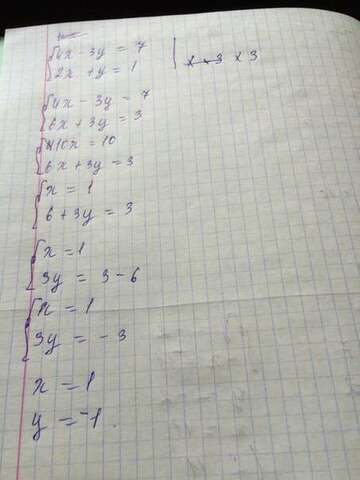 4x - 3y = 7
2x + y = 1 | × 3
4x - 3y = 7
6x + 3y = 3
10x = 10
6x + 3y = 3
x = 1
6 + 3y = 3
x = 1
3y = 3 - 6
x = 1
3y = -3
x = 1
y = -1